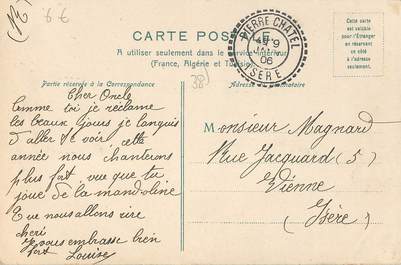 (M)
9 9
CARTE POSTALE
A utiliser seulement dans le service intérieur
(France, Algérie et Tunisie)
PIERRE CHATEL
9
JANV
06
ISERE
Cette carte
est valable
pour l'Etranger
en réservant
ce côté
à l'adresse
seulement.
Partie réservée à la Correspondance
(38)
Adresse du Destinataire
Cher Oncle
Comme toi je réclame
les beaux Jours je languis
d'aller te voir, cette
année nous chanterons
plus fort vue que tu
joue de la mandoline
Que nous allons rire
cheri
Je vous embrasse bien
fort Louise
Monsieur Magnard
Rue Jacquard (5)
Vienne
(Isère)